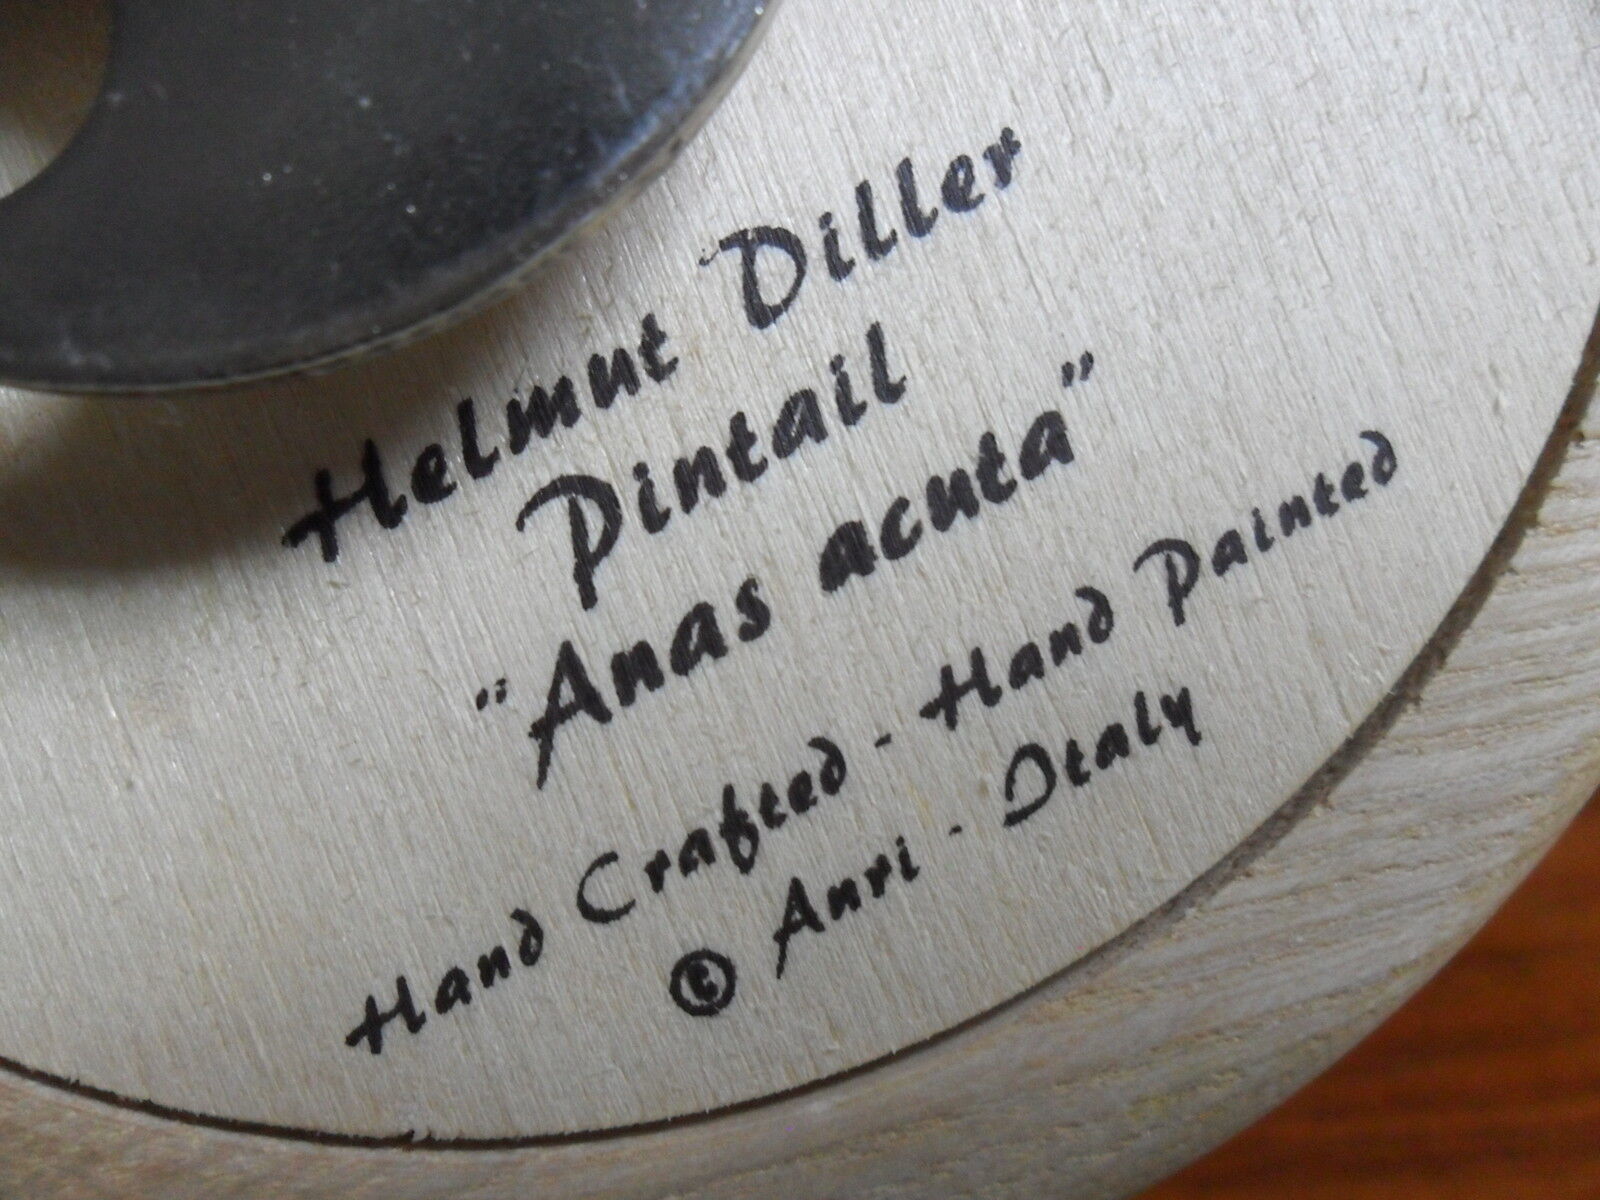 Helmut Diller
Pintail
"Anas acuta"
Hand Crafted - Hand Painted
© Anri - Italy